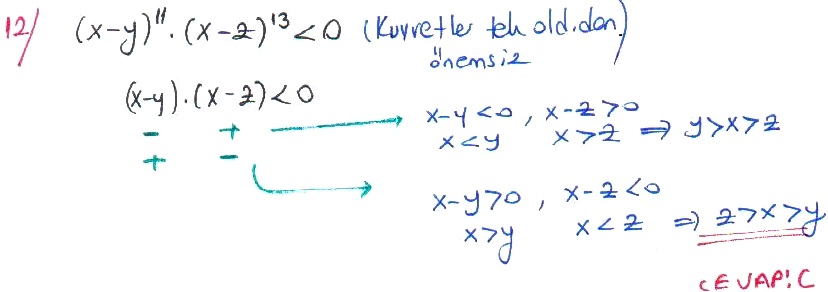 12/ (x-y)¹¹.(x-z)¹³<0 (Kuvvetler tek old.dan) önemsiz
(x-y).(x-z)<0
- + → x-y<0, x-z>0
x<y x>z ⇒ y>x>z
+ - → x-y>0, x-z<0
x>y x<z ⇒ z>x>y
CEVAP: C